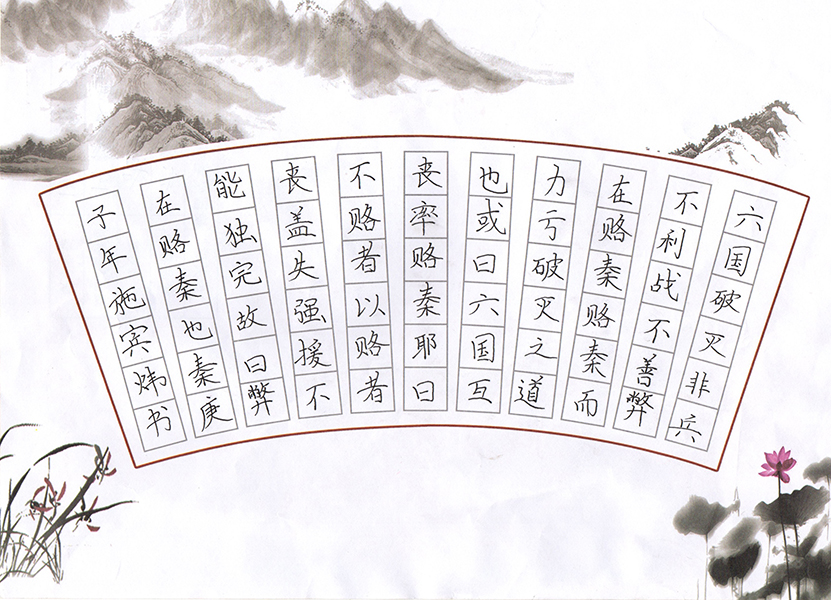 六国破灭非兵
不利战不善弊
在赂秦赂秦而
力亏破灭之道
也或曰六国互
丧率赂秦耶曰
不赂者以赂者
丧盖失强援不
能独完故曰弊
在赂秦也秦庚
子年施宾炜书